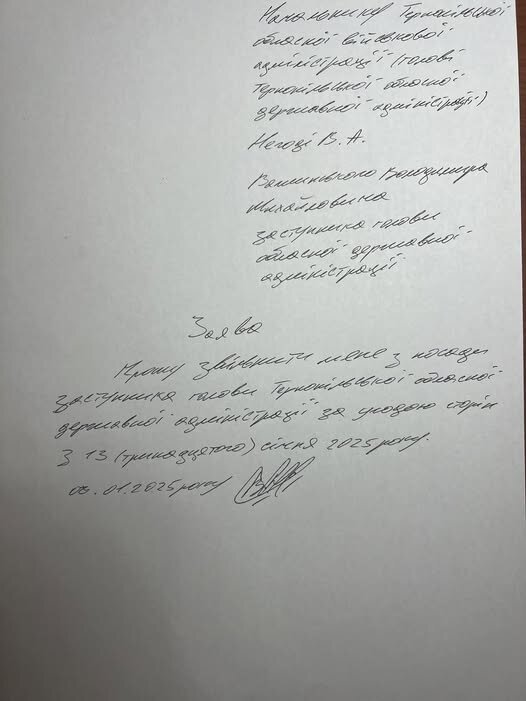 Начальнику Тернопільської
обласної військової
адміністрації (голові
Тернопільської обласної
державної адміністрації)
Негоді В. А.
Володимира
Михайловича
заступника голови
обласної державної
адміністрації
Заява
Прошу звільнити мене з посади
заступника голови Тернопільської обласної
державної адміністрації за угодою сторін
з 13 (тринадцятого) січня 2025 року.
.01.2025 року